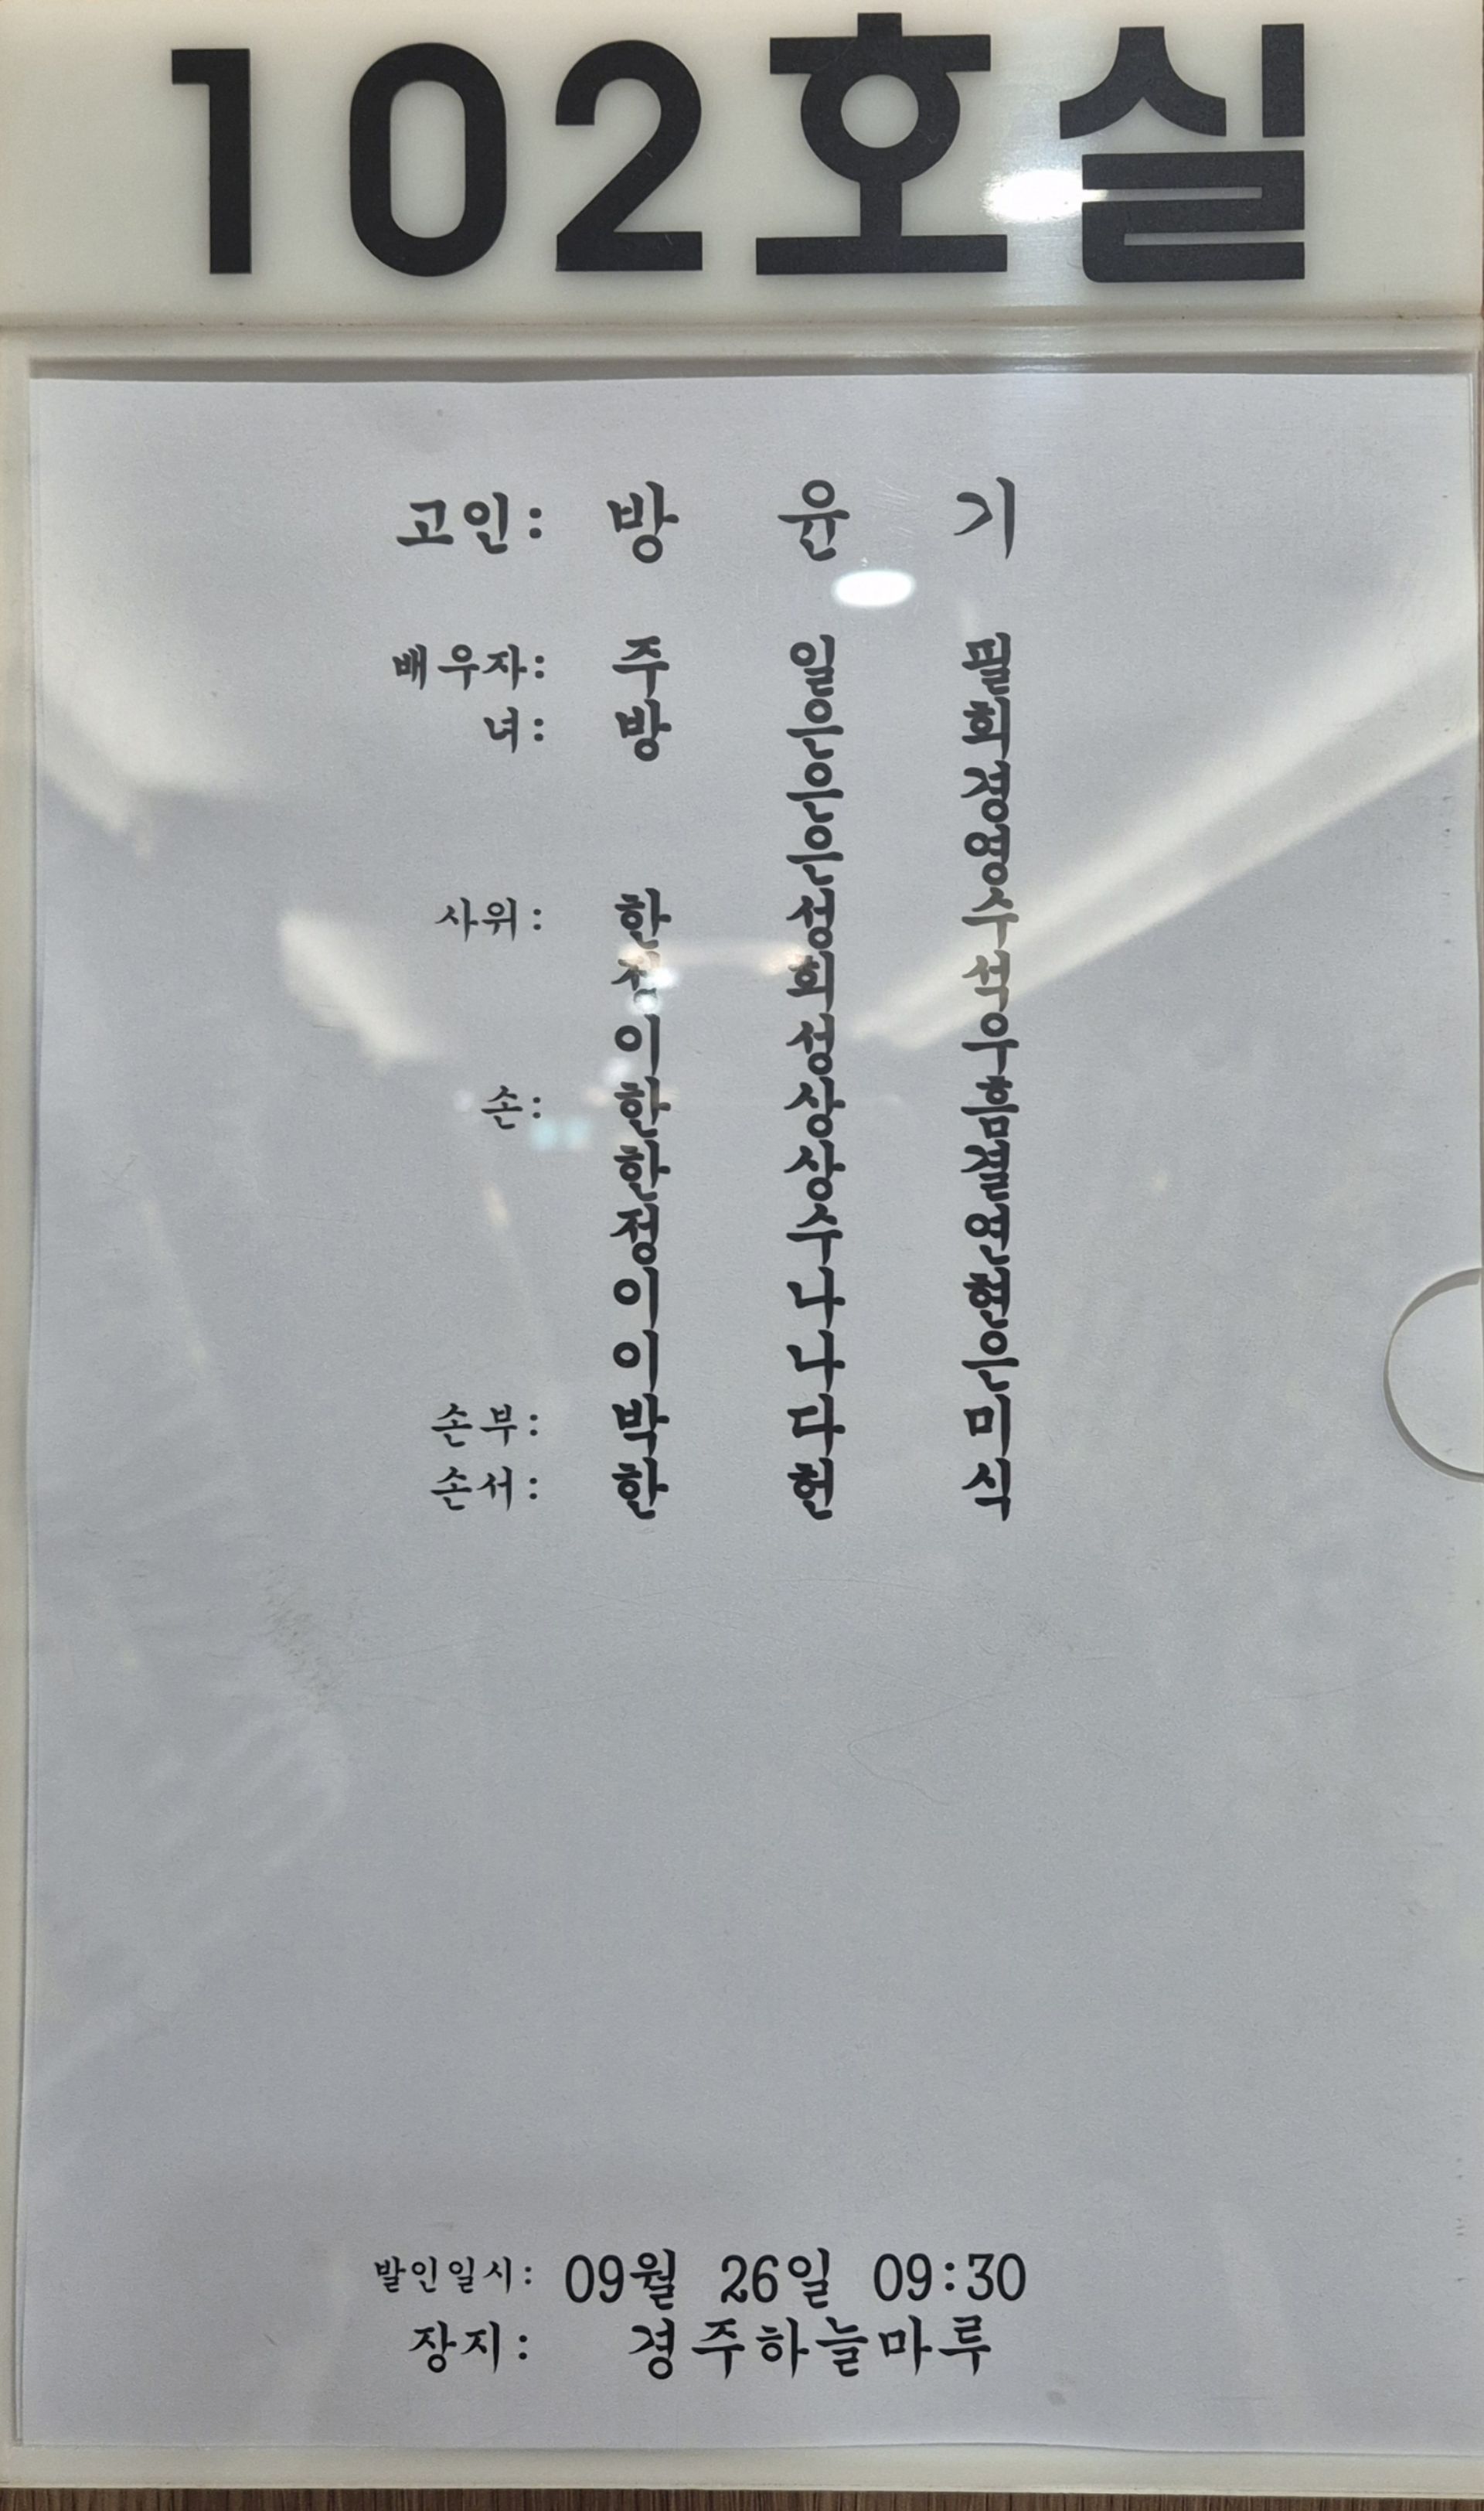 102호실
고인: 방 윤 기
배우자: 주 일 필
녀: 방 은 희
은 경
은 영
사위: 한 성 수
정 희 석
이 성 우
손: 한 상 흠
한 상 결
정 수 연
이 나 현
이 나 은
손부: 박 다 미
손서: 한 헌 식
발인일시: 09월 26일 09:30
장지: 경주하늘마루